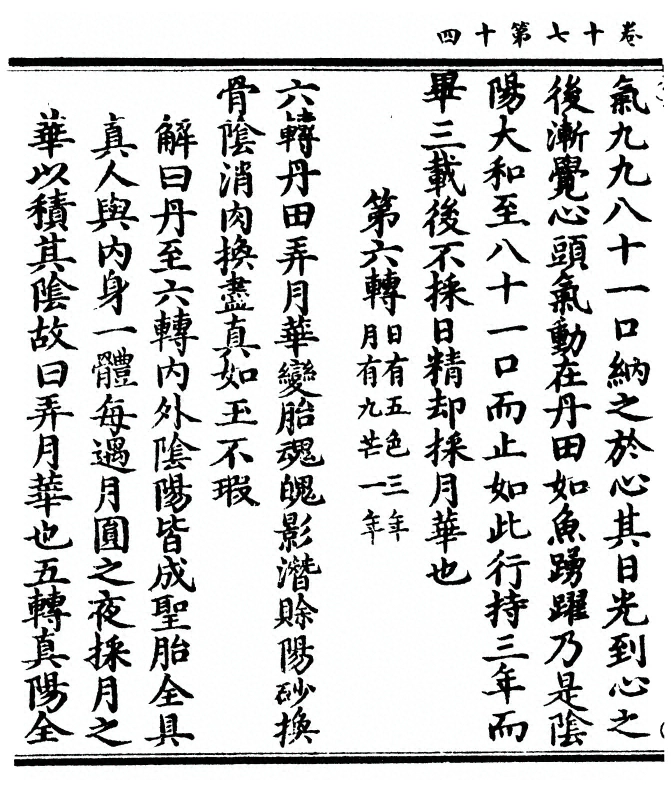 卷十七第十四
氣九九八十一口納之於心其日光到心之
後漸覺心頭氣動在丹田如魚踴躍乃是陰
陽大和至八十一口而止如此行持三年而
畢三載後不採日精却採月華也
第六轉日有五色三年月有九芒一年
六轉丹田弄月華變胎魂魄影潛賒陽砂換
骨陰消肉換盡真如玉不瑕
解曰丹至六轉內外陰陽皆成聖胎全具
真人與內身一體每遇月圓之夜採月之
華以積其陰故曰弄月華也五轉真陽全